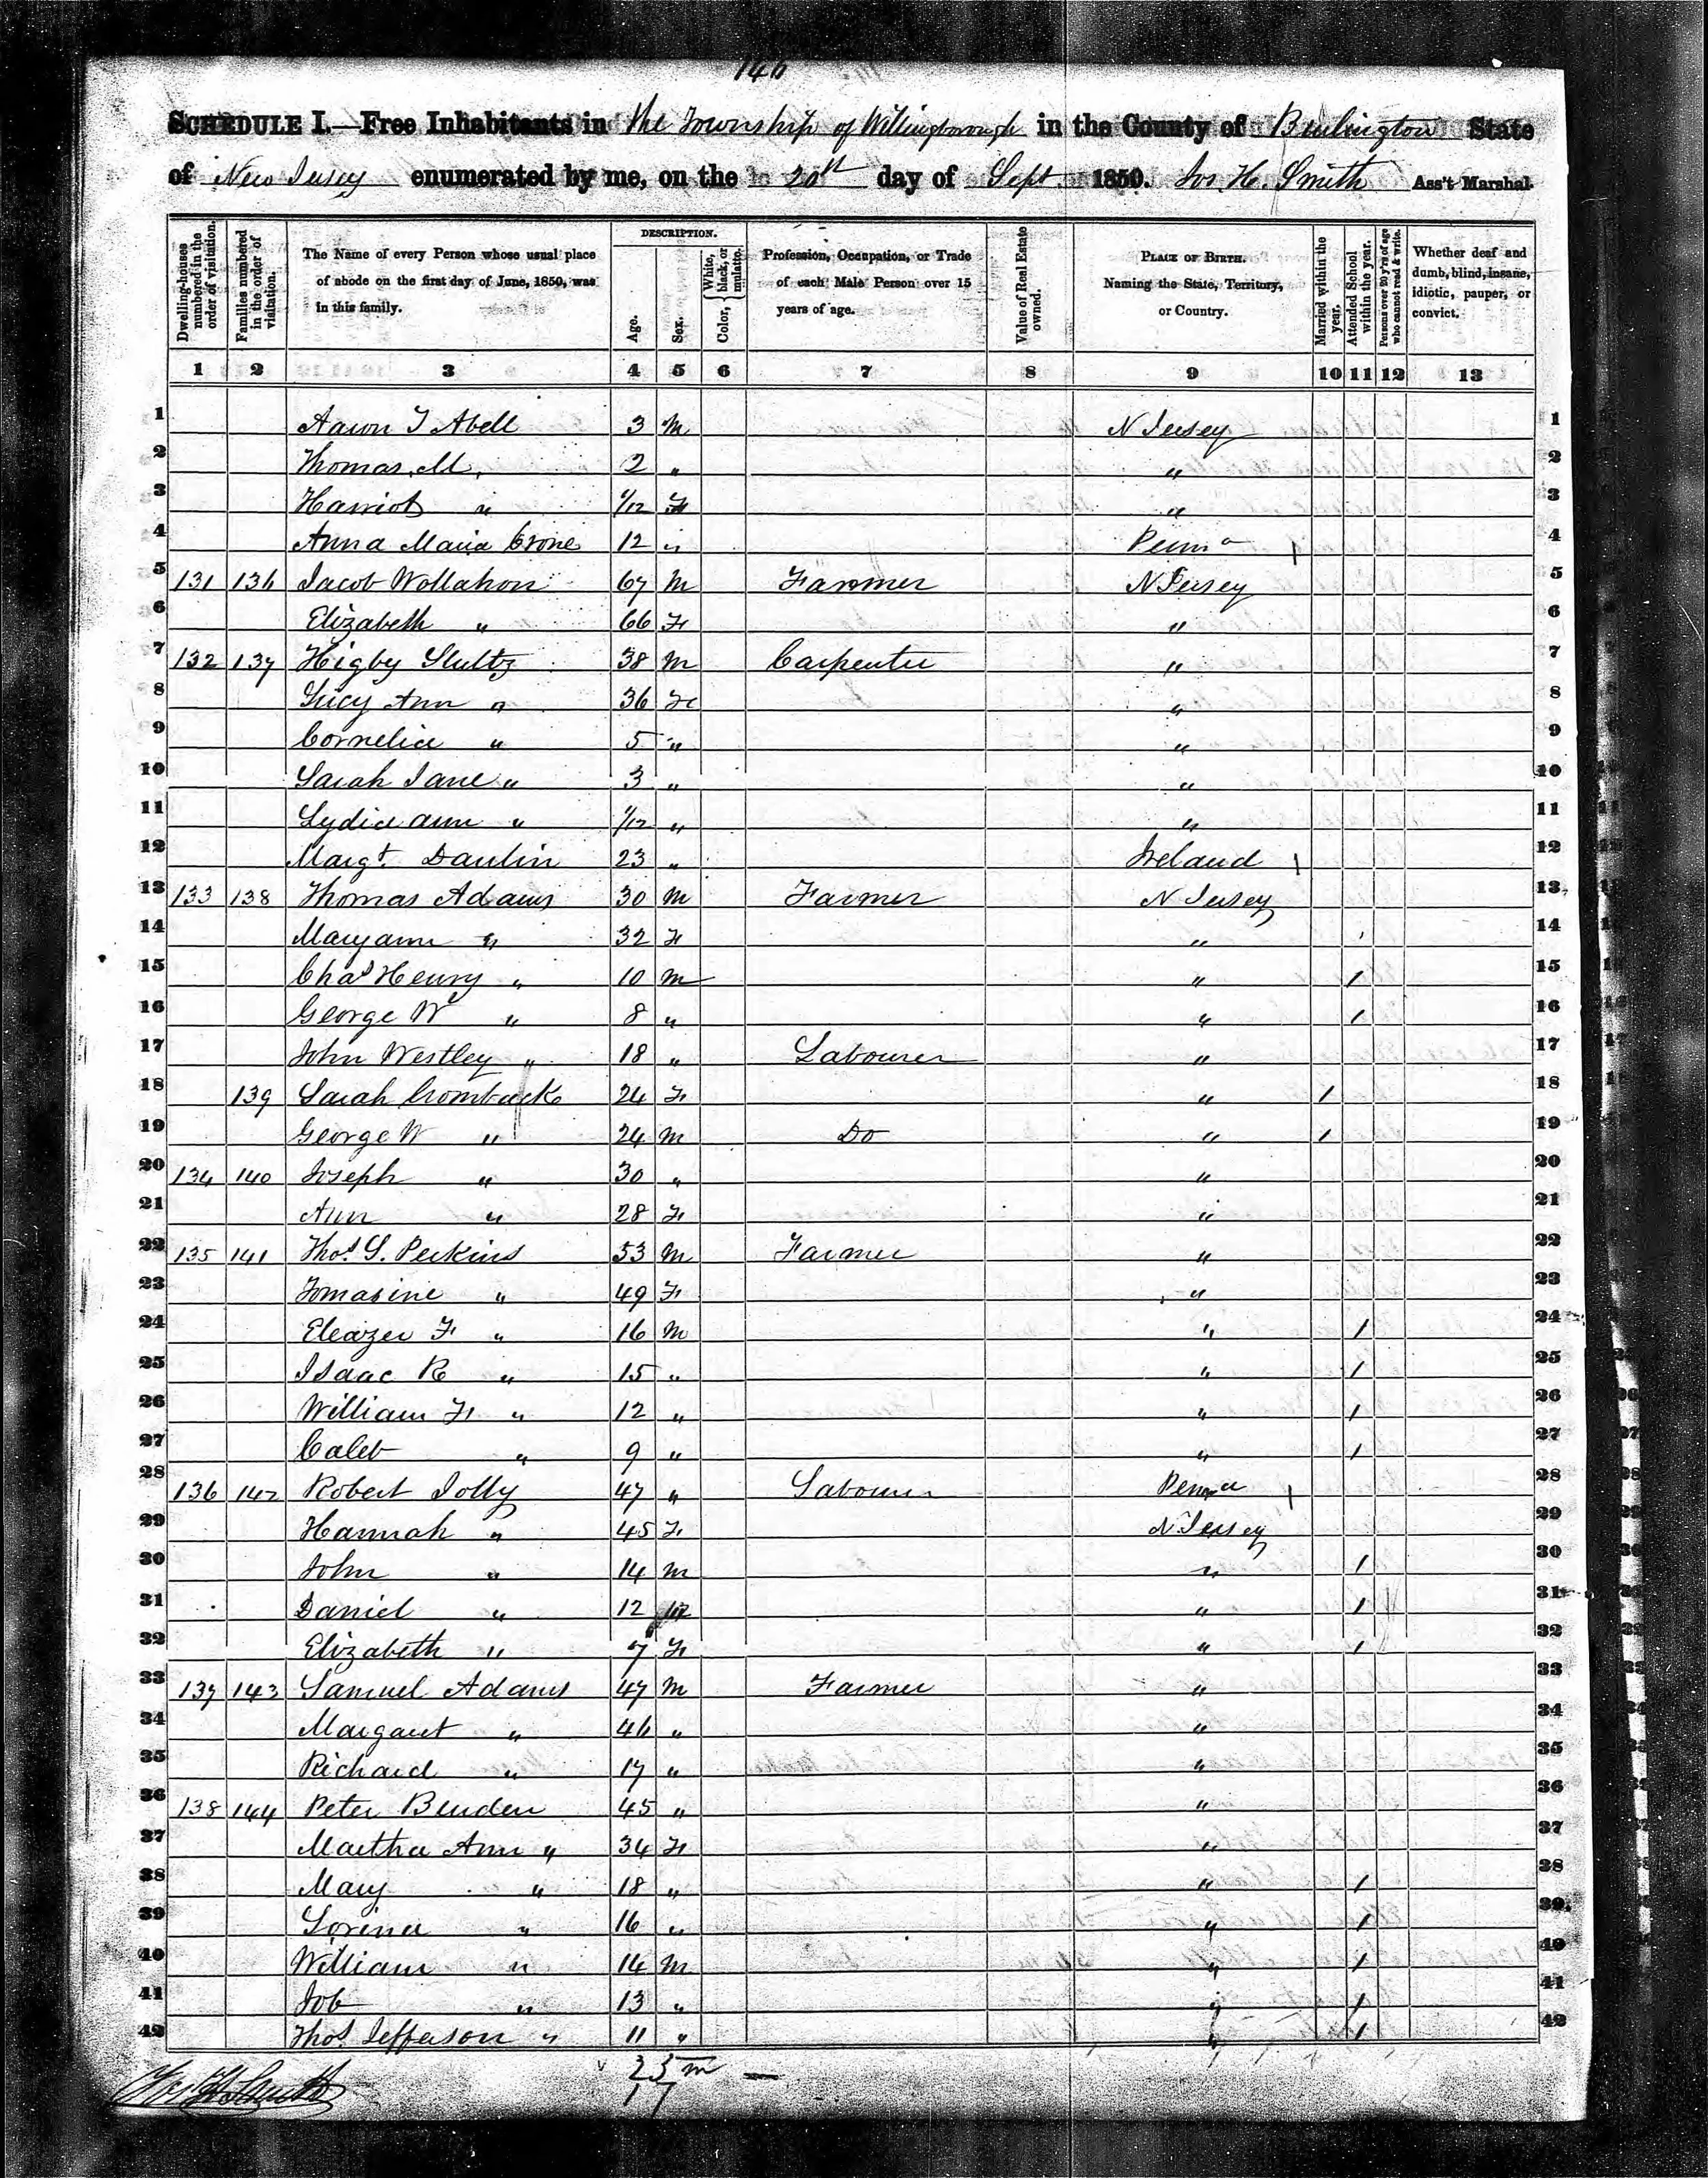 146
SCHEDULE I.—Free Inhabitants in the Township of Willingborough in the County of Burlington State
of New Jersey enumerated by me, on the 20th day of Sept 1850. Jos. H. Smith Ass't Marshal.
Dwelling-houses numbered in the order of visitation.
Families numbered in the order of visitation.
The Name of every Person whose usual place of abode on the first day of June, 1850, was in this family.
DESCRIPTION.
Age.
Sex.
Color, { White, black, or mulatto.
Profession, Occupation, or Trade of each Male Person over 15 years of age.
Value of Real Estate owned.
PLACE OF BIRTH. Naming the State, Territory, or Country.
Married within the year.
Attended School within the year.
Persons over 20 y'rs of age who cannot read & write.
Whether deaf and dumb, blind, insane, idiotic, pauper, or convict.
1 2 3 4 5 6 7 8 9 10 11 12 13
1 Aaron J Abell 3 M N Jersey 1
2 Thomas M, 2 " " 2
3 Harriot " /12 F " 3
4 Anna Maria Crone 12 " Penna | 4
5 131 136 Jacob Wollahon 67 M Farmer N Jersey 5
6 Elizabeth " 66 F " 6
7 132 137 Higby Stultz 38 M Carpenter " 7
8 Lucy Ann " 36 F " 8
9 Cornelia " 5 " " 9
10 Sarah Jane " 3 " " 10
11 Lydia ann " /12 " " 11
12 Margt. Daulin 23 " Ireland | 12
13 133 138 Thomas Adams 30 M Farmer N Jersey 13
14 Maryann " 32 F " 14
15 Chas Henry " 10 M " / 15
16 George W " 8 " " / 16
17 John Westley " 18 " Labourer " 17
18 139 Sarah Crombuck 24 F " / 18
19 George W " 24 M Do " / 19
20 134 140 Joseph " 30 " " 20
21 Ann " 28 F " 21
22 135 141 Thos. S. Perkins 53 M Farmer " 22
23 Tomasine " 49 F " 23
24 Eleazer F " 16 M " / 24
25 Isaac R " 15 " " / 25
26 William F " 12 " " / 26
27 Caleb " 9 " " / 27
28 136 142 Robert Jolly 47 " Labourer Penna | 28
29 Hannah " 45 F N Jersey 29
30 John " 14 M " / 30
31 Daniel " 12 M " / 31
32 Elizabeth " 7 F " / 32
33 137 143 Samuel Adams 47 M Farmer " 33
34 Margaret " 46 " " 34
35 Richard " 17 " " 35
36 138 144 Peter Burden 45 " " 36
37 Martha Ann " 34 F " 37
38 Mary " 18 " " / 38
39 Lorina " 16 " " / 39
40 William " 14 M " / 40
41 Job " 13 " " / 41
42 Thos Jefferson " 11 " " / 42
25 m —
17
Jos H Smith